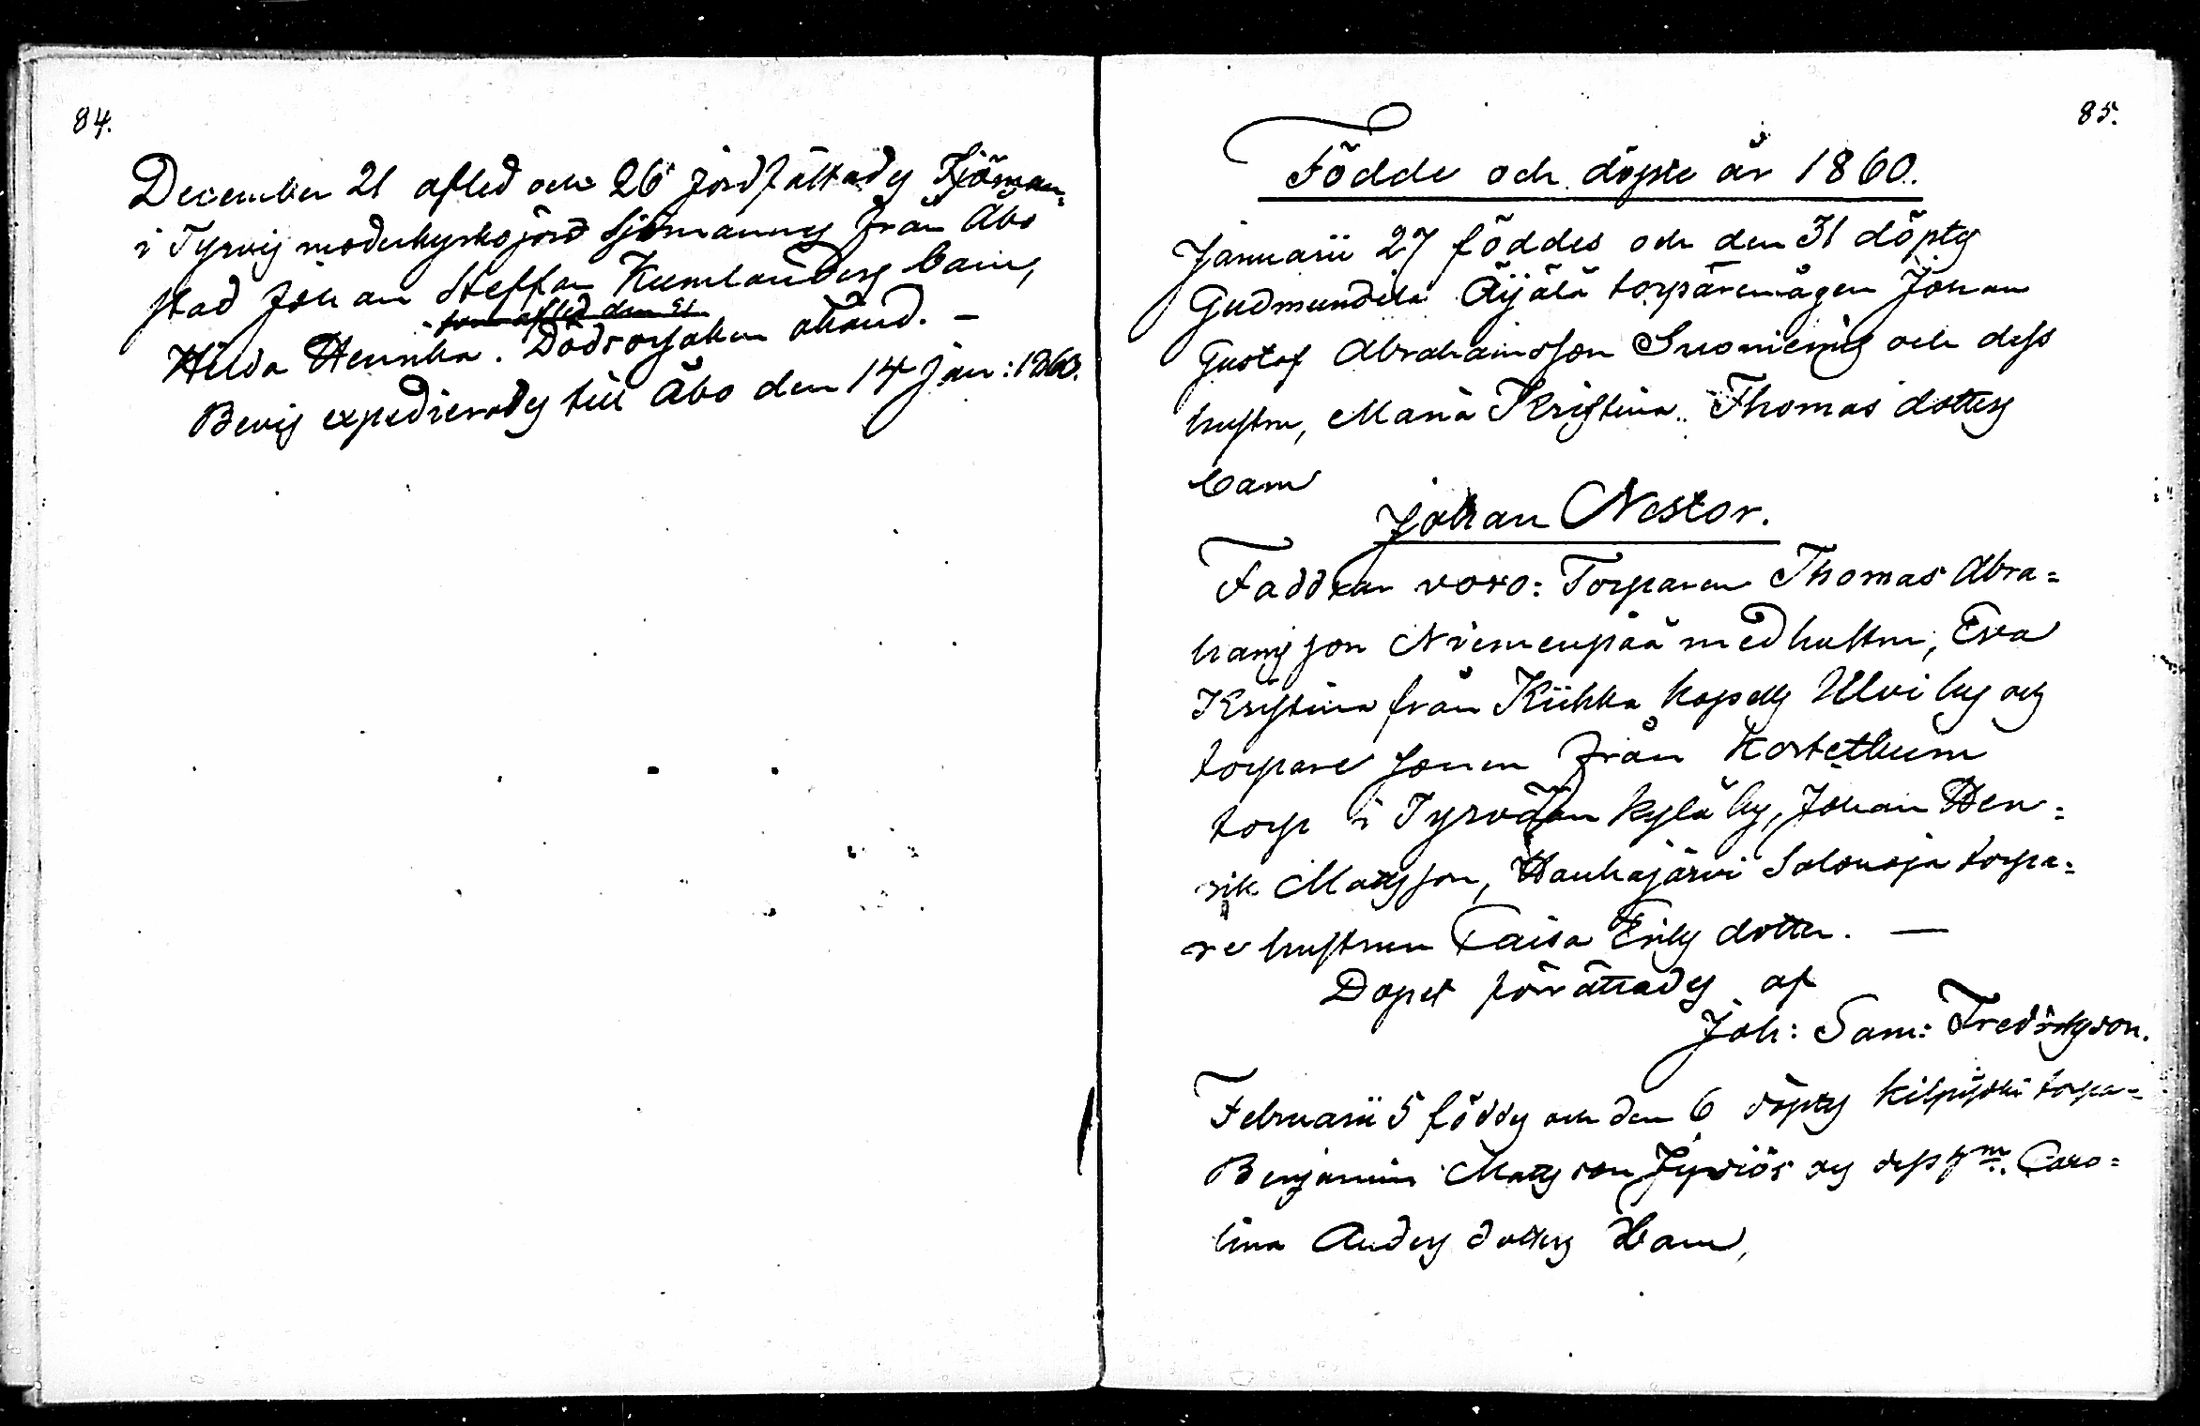 84.
December 21 afled och 26 jordfästades Sjöman-
i Tyrvis moderkyrkojord Sjömannens från Åbo
stad Johan Steffan Kumlanders barn,
som afled den 21
Hilda Hennika. Dödsorsaken okänd. —
Bevis expedierades till Åbo den 14 Jan: 1860.
85.
Födde och döpte år 1860.
Januarii 27 föddes och den 31 döptes
Gudmundila Äijälä torpäremågen Johan
Gustaf Abrahamsson Suominens och dess
hustru, Maria Kristina Thomas dotters
barn
Johan Nestor.
Faddrar voro: Torparen Thomas Abra=
hamsson Niemenpää med hustru, Eva
Kristina från Kiikka kapells Ulvi by och
torpare sonen från Kortetkum
torp i Tyrvään kylä by, Johan Hen=
rik Matsson, Haukajärvi Salonoja torpa=
re hustrun Caisa Eriks dotter. —
Dopet förrättades af
Joh: Sam: Fredriksson.
Februarii 5 föddes och den 6 döptes torpa=
Benjamin Matsson och dess Caro=
lina Anders dotters barn,